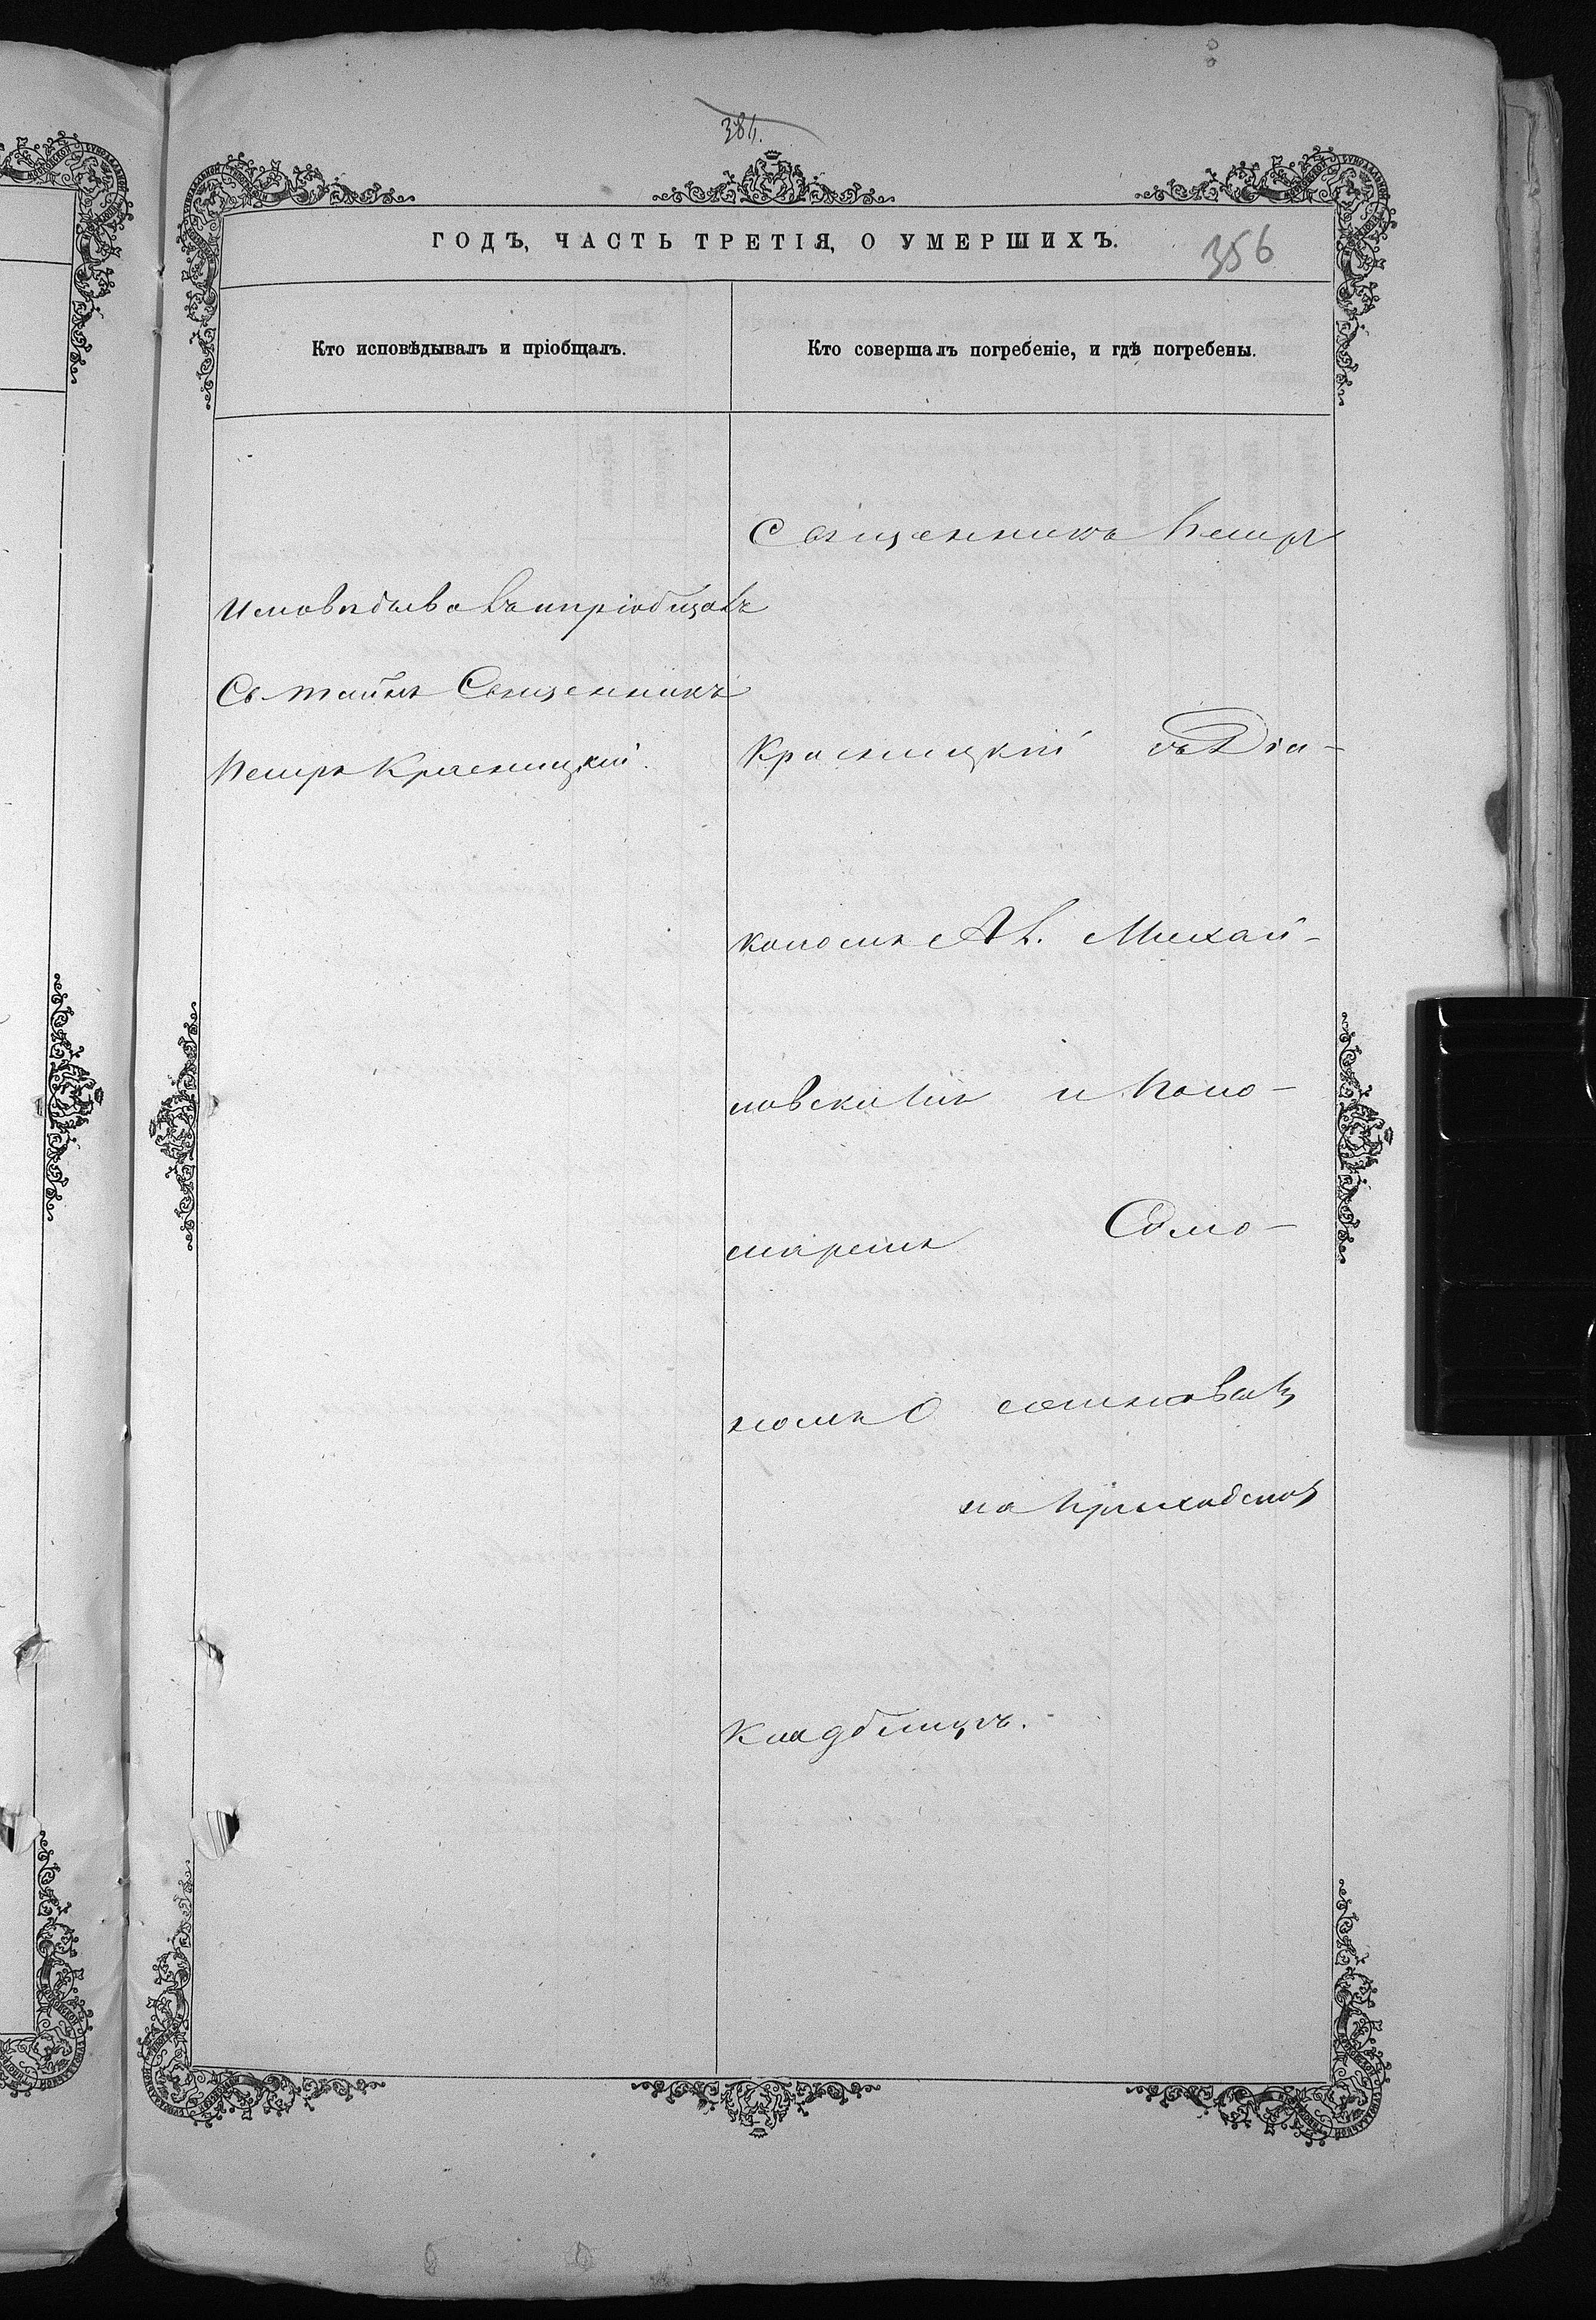 384.
ГОДЪ, ЧАСТЬ ТРЕТІЯ, О УМЕРШИХЪ.
356
Кто исповѣдывалъ и пріобщалъ.
Кто совершалъ погребеніе, и гдѣ погребены.
Исповѣдывалъ и пріобщалъ
Св. Таинъ Священникъ
Петръ Красницкій.
Священникъ Петръ
Красницкій съ Діа-
кономъ Ал. Михай-
ловскимъ и Поно-
маремъ
на Приходскомъ
Кладбищѣ.